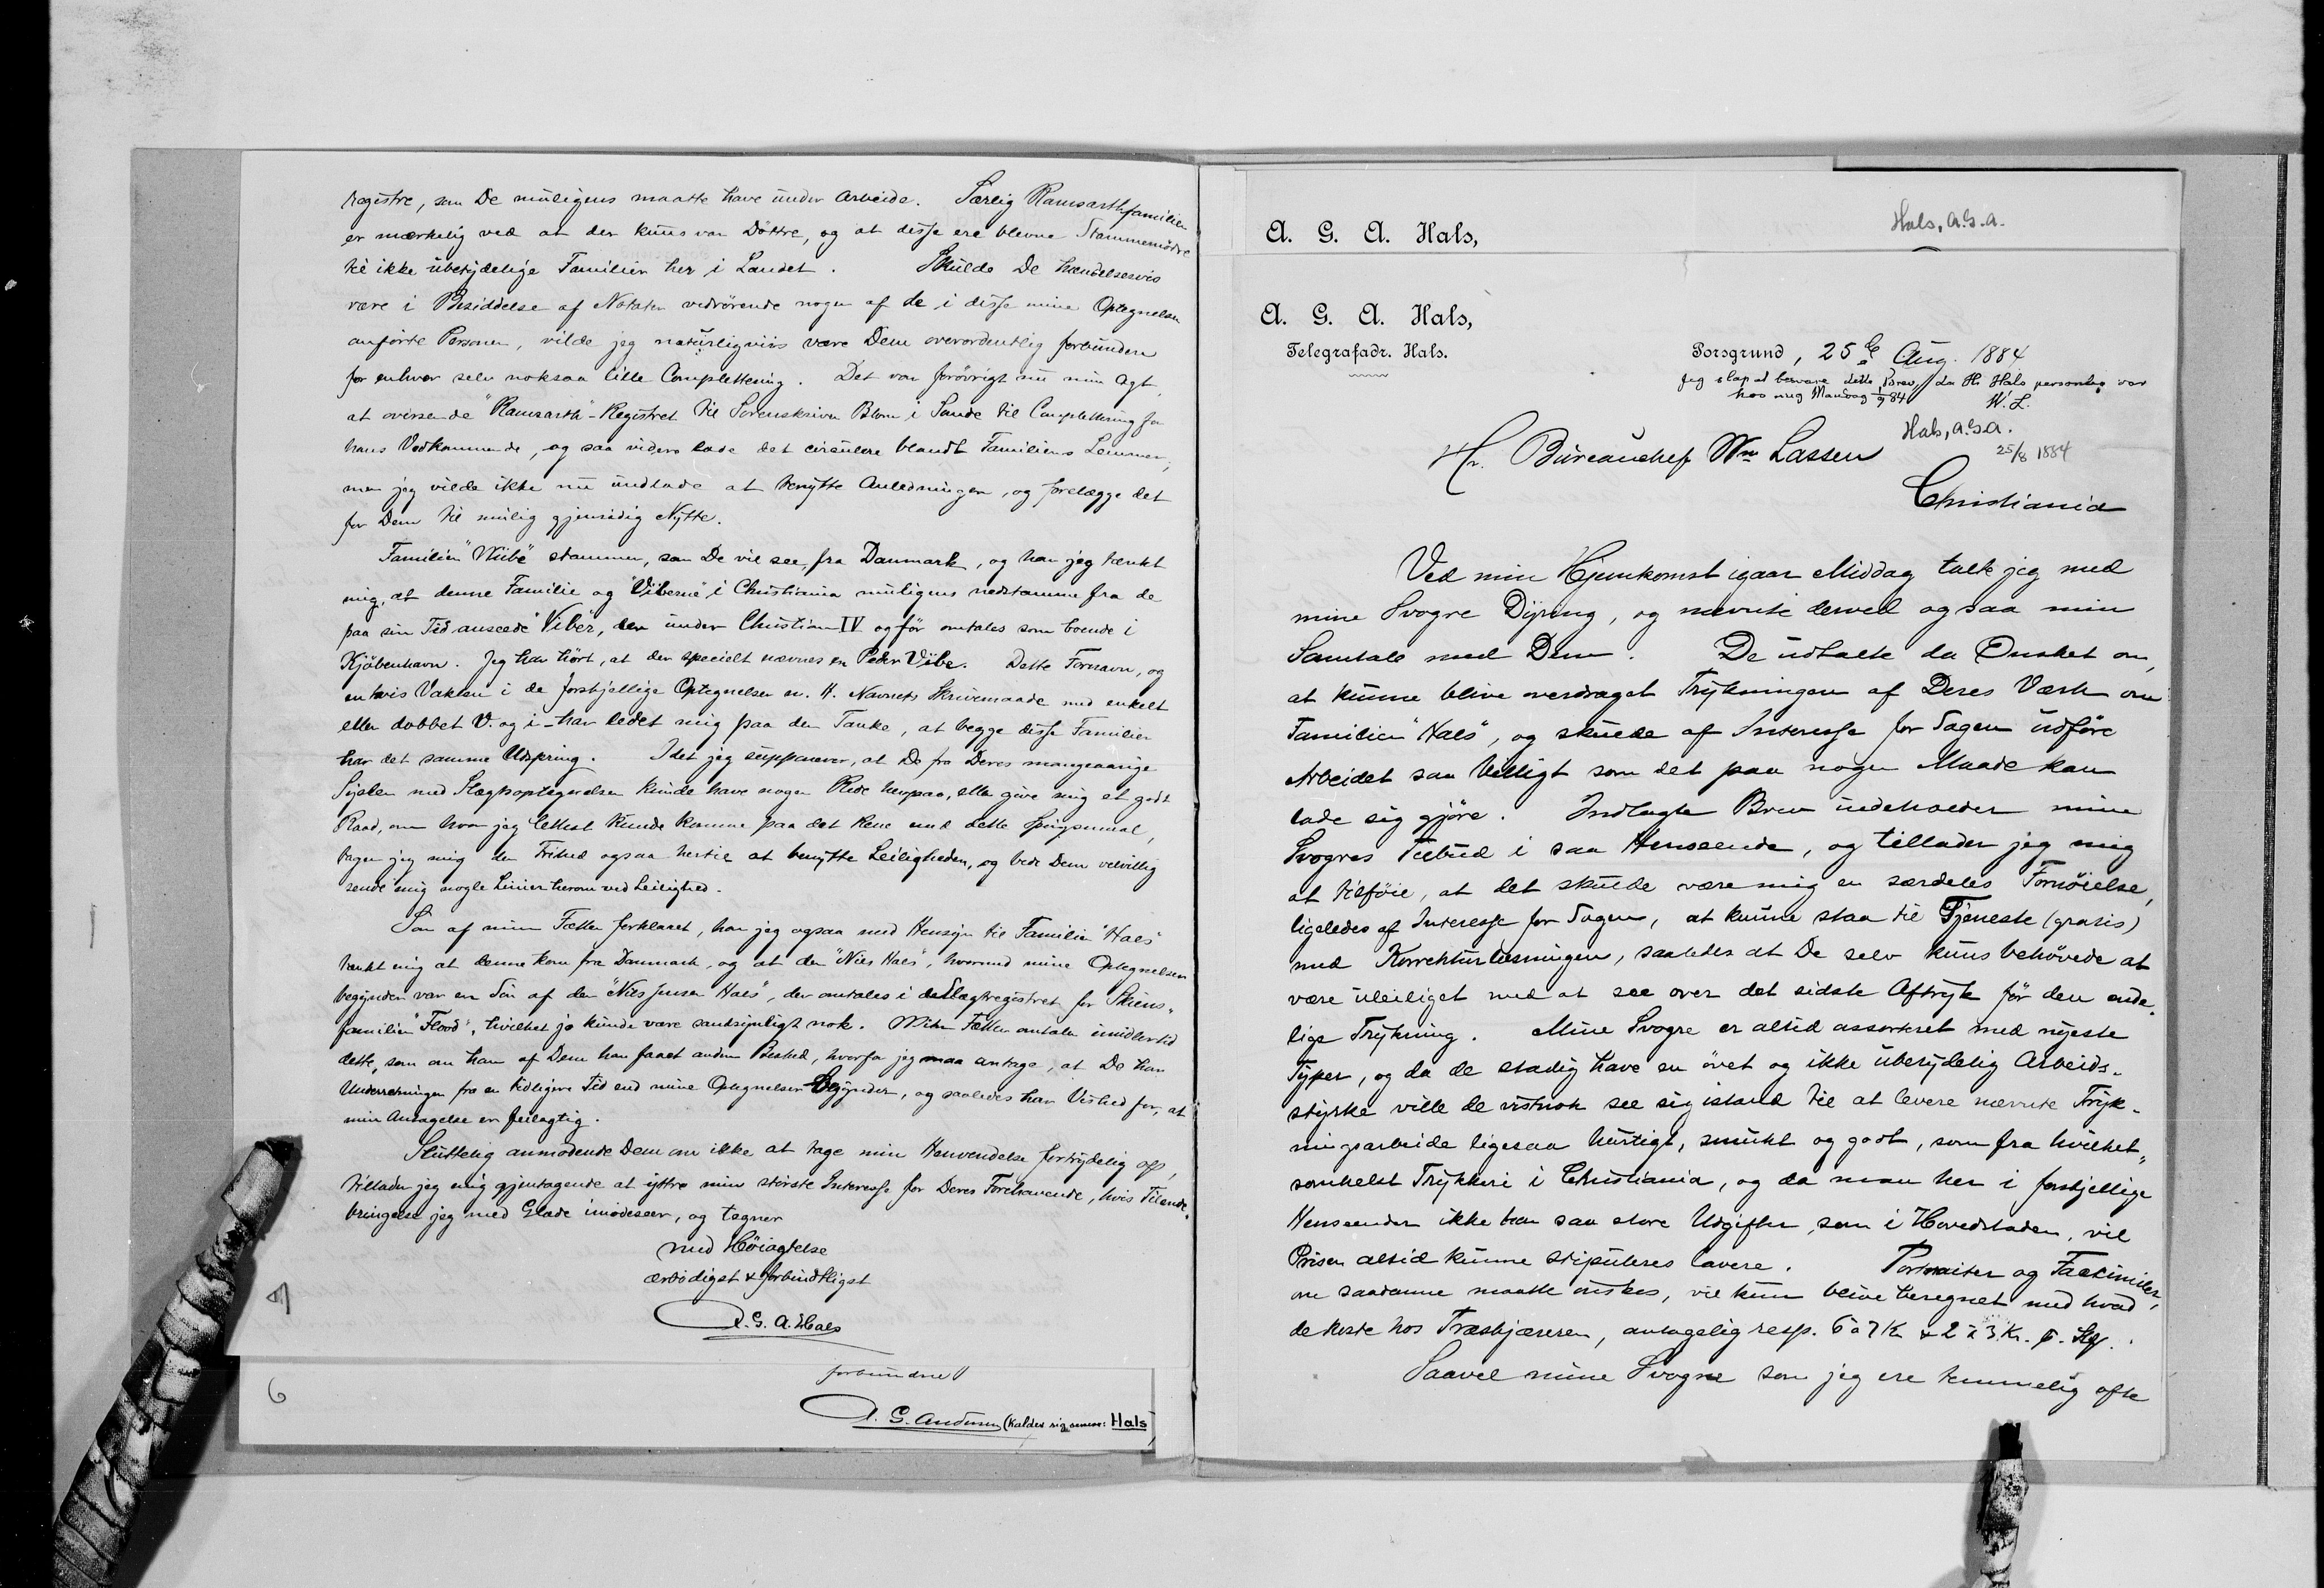 registre, som De muligens maatte have under Arbeide. Særlig Ramsarthfamilien
er mærkelig ved at der kuns var Döttre, og at disse ere blevne Stammemödre
til ikke ubetydelige Familier her i Landet. Skulde De hændelsesvis
være i Besiddelse af Notater vedrörende nogen af de i disse mine Optegnelser
anförte Personer, vilde jeg naturligviis være Dem overordentlig forbunden
for enhver selv noksaa lille Complettering. Det var forövrigt nu min Agt,
at oversende "Ramsarth"-Registret til Sorenskriver Blom i Sande til Complettering for
hans Vedkommende, og saa videre lade det circulere blandt Familiens Lemmer,
men jeg vilde ikke nu undlade at benytte Anledningen, og forelægge det
for Dem til mulig gjensidig Nytte.
Familien "Wiibe" stammer, som De vil see, fra Danmark, og har jeg tænkt
mig, at denne Familie og "Viberne" i Christiania muligens nedstamme fra de
paa sin Tid anseede "Viber", der under Christian IV og för omtales som boende i
Kjöbenhavn. Jeg har hört, at der specielt nævnes en Peder Vibe. Dette Fornavn, og
en vis Vaklen i de forskjellige Optegnelser m. H. Navnets Skrivemaade med enkelt
eller dobbet V. og i - har ledet mig paa den Tanke, at begge disse Familier
har det samme Udspring. Idet jeg supponerer, at De fra Deres mangeaarige
Syslen med Slægtsoptegnelser kunde have nogen Rede herpaa, eller give mig et godt
Raad, om hvor jeg lettest kunde komme paa det Rene med dette Spörgsmaal,
tager jeg mig den Frihed ogsaa hertil at benytte Leiligheden, og bede Dem velvillig
sende mig nogle Linier herom ved Leilighed.
Som af min Fætter forklaret, har jeg ogsaa med Hensyn til Familien "Hals"
tænkt mig at denne kom fra Danmark, og at den "Niels Hals", hvormed mine Optegnelser
begynder var en Sön af den "Nils Jensen Hals", der omtales i Slægtregistret for Skiens-
familien "Flood", hvilket jo kunde være sandsynligt nok. Min Fætter omtaler imidlertid
dette, som om han af Dem har faaet anden Besked, hvorfor jeg maa antage, at De har
Underretninger fra en tidligere Tid end mine Optegnelser begynder, og saaledes har Vished for, at
min Antagelse er feilagtig.
Sluttelig anmodende Dem om ikke at tage min Henvendelse fortrydelig op,
tillader jeg mig gjentagende at yttre min störste Interesse for Deres Forehavende, hvis Tilende-
bringelse jeg med Glæde imödeseer, og tegner
med Höiagtelse
ærbödigst & forbindtligst
A. G. A. Hals
7
6
forbundne
A. G. Andersen (kalder sig senere: Hals)
Hals, A.G.A.
A. G. A. Hals,
A. G. A. Hals,
Telegrafadr. Hals.
Porsgrund, 25de Aug. 1884
Jeg slap at besvare dette Brev, da Hr Hals personlig var
hos mig Mandag 1/9 84 W. L.
Hals, A.G.A.
25/8 1884
Hr. Büreauchef Wm Lassen
Christiania
Ved min Hjemkomst igaar Middag talte jeg med
mine Svogre Dyring, og nævnte derved ogsaa min
Samtale med Dem. De udtalte da Önsket om,
at kunne blive overdraget Trykningen af Deres Værk om
Familien "Hals", og skulde af Interesse for Sagen udföre
Arbeidet saa billigt som det paa nogen Maade kan
lade sig gjöre. Indlagte Brev indeholder mine
Svogres Tilbud i saa Henseende, og tillader jeg mig
at tilföie, at det skulde være mig en særdeles Fornöielse,
ligeledes af Interesse for Sagen, at kunne staa til Tjeneste (gratis)
med Korrekturlæsningen, saaledes at De selv kuns behövede at
være uleiliget med at see over det sidste Aftryk för den ende-
lige Trykning. Mine Svogre er altid assorteret med nyeste
Typer, og da de stadig have en övet og ikke ubetydelig Arbeids-
styrke ville de vistnok see sig istand til at levere nævnte Tryk-
ningsarbeide ligesaa hurtigt, smukt og godt, som fra hvilket-
somhelst Trykkeri i Christiania, og da man her i forskjellige
Henseender ikke har saa store Udgifter som i Hovedstaden, vil
Prisen altid kunne stipuleres lavere. Portraiter og Facsimiler,
om saadanne maatte önskes, vil kun blive beregnet med hvad
de koste hos Træskjæreren, antagelig resp. 6 à 7 Kr. & 2 à 3 Kr. p. Stk.
Saavel mine Svogre som jeg ere temmelig ofte